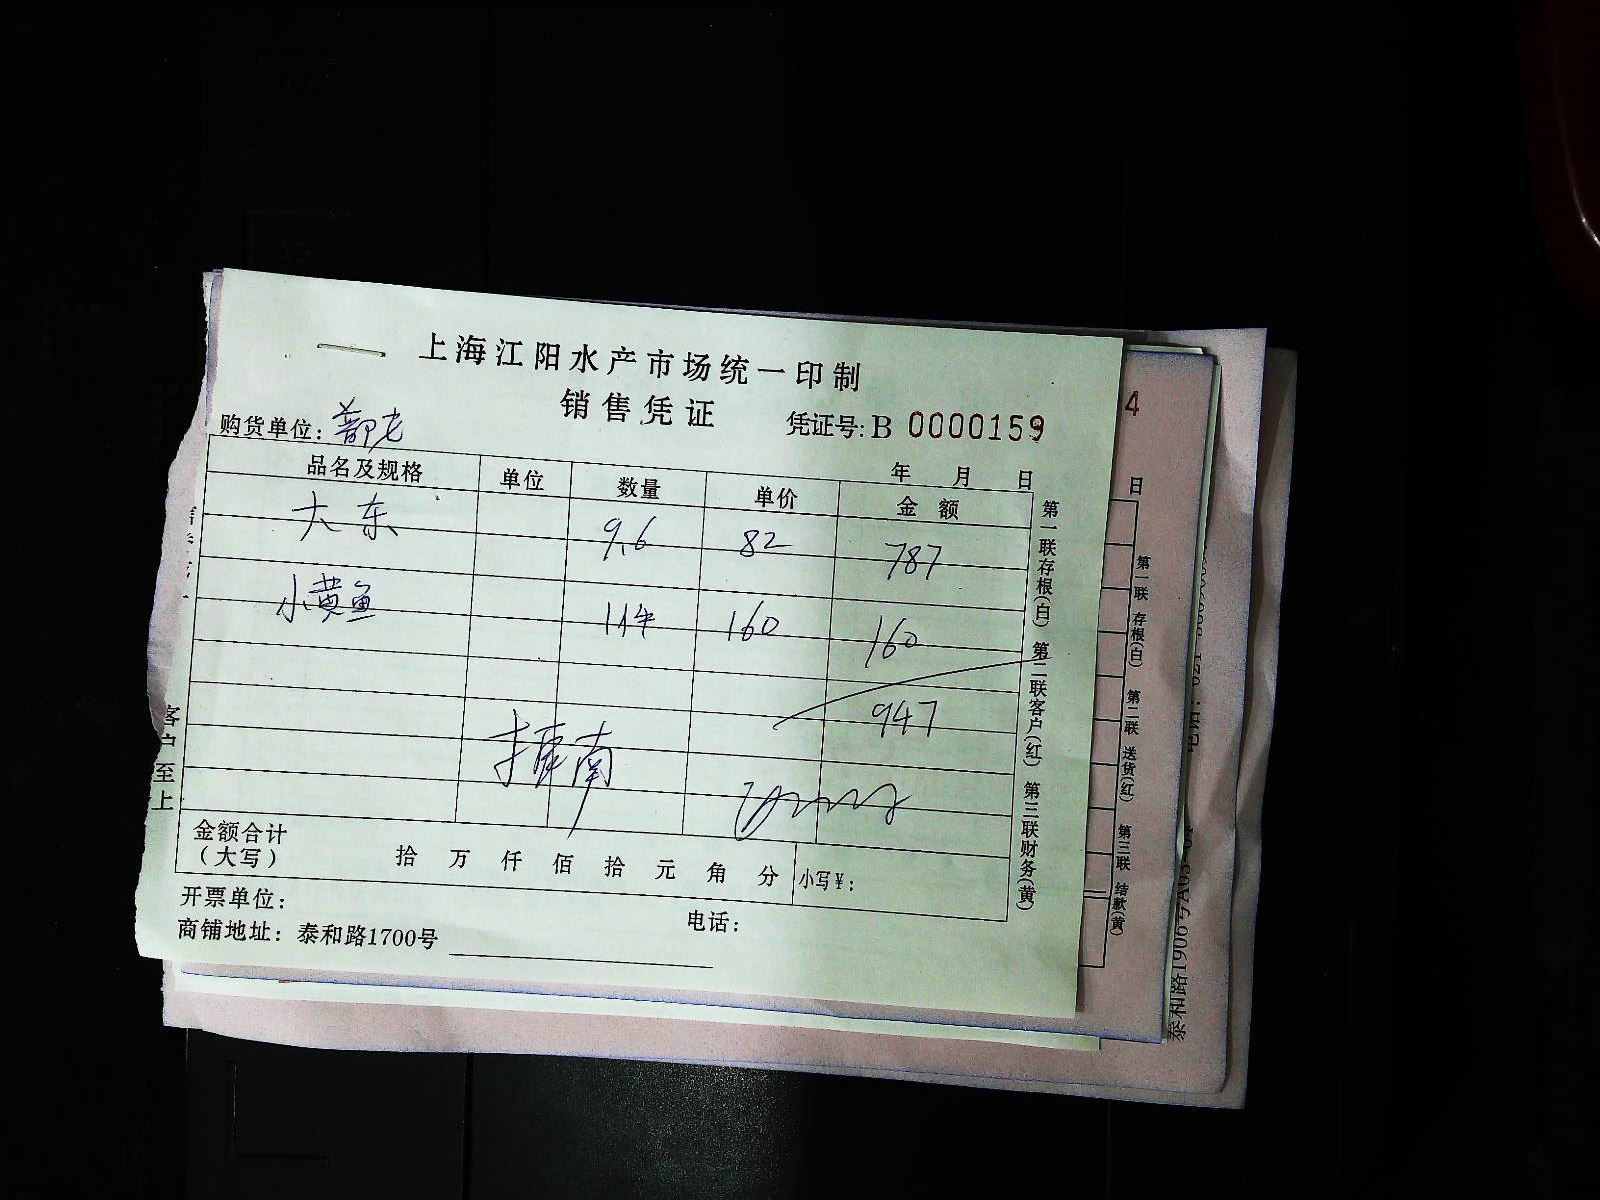 上海江阳水产市场统一印制
销售凭证
凭证号: B 0000159
购货单位:
年 月 日
品名及规格 单位 数量 单价 金额
大东 9.6 82 787
小黄鱼 1件 160 160
947
金额合计
(大写) 拾 万 仟 佰 拾 元 角 分 小写¥:
开票单位: 电话:
商铺地址: 泰和路1700号
第一联存根(白) 第二联客户(红) 第三联财务(黄)
客户至上
4
日
第一联 存根(白) 第二联 送货(红) 第三联 结款(黄)